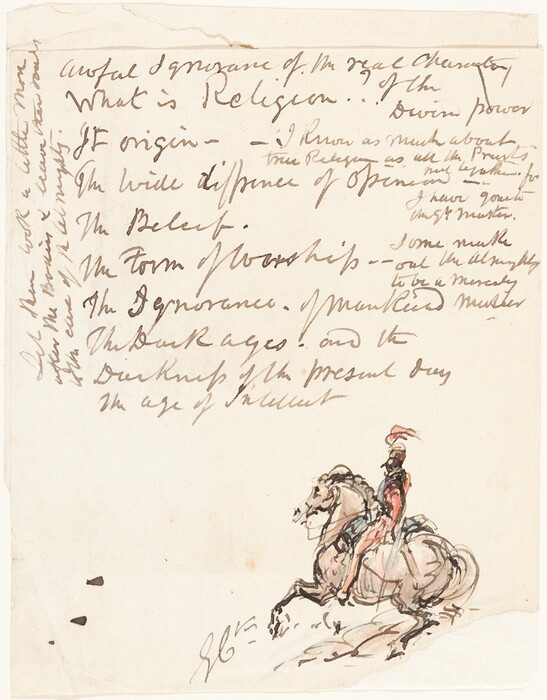 awful Ignorance of the real Character
of the
Divine power
What is Religion . . ?
It origin –
– I know as much about
true Religion as all the Priests
put together – for
I have gone to
the Gt Master.
The wide diffrence of Openion –
The Beleif.
The Form of Worship –
– Some make
out the Almighty
to be a Merciless
The Ignorance of Mankind
The Dark ages – and the
Darkness of the present Day
the age of Intellect
Let them look a little more
after the Bodies & leave their souls
to the care of the Almighty.